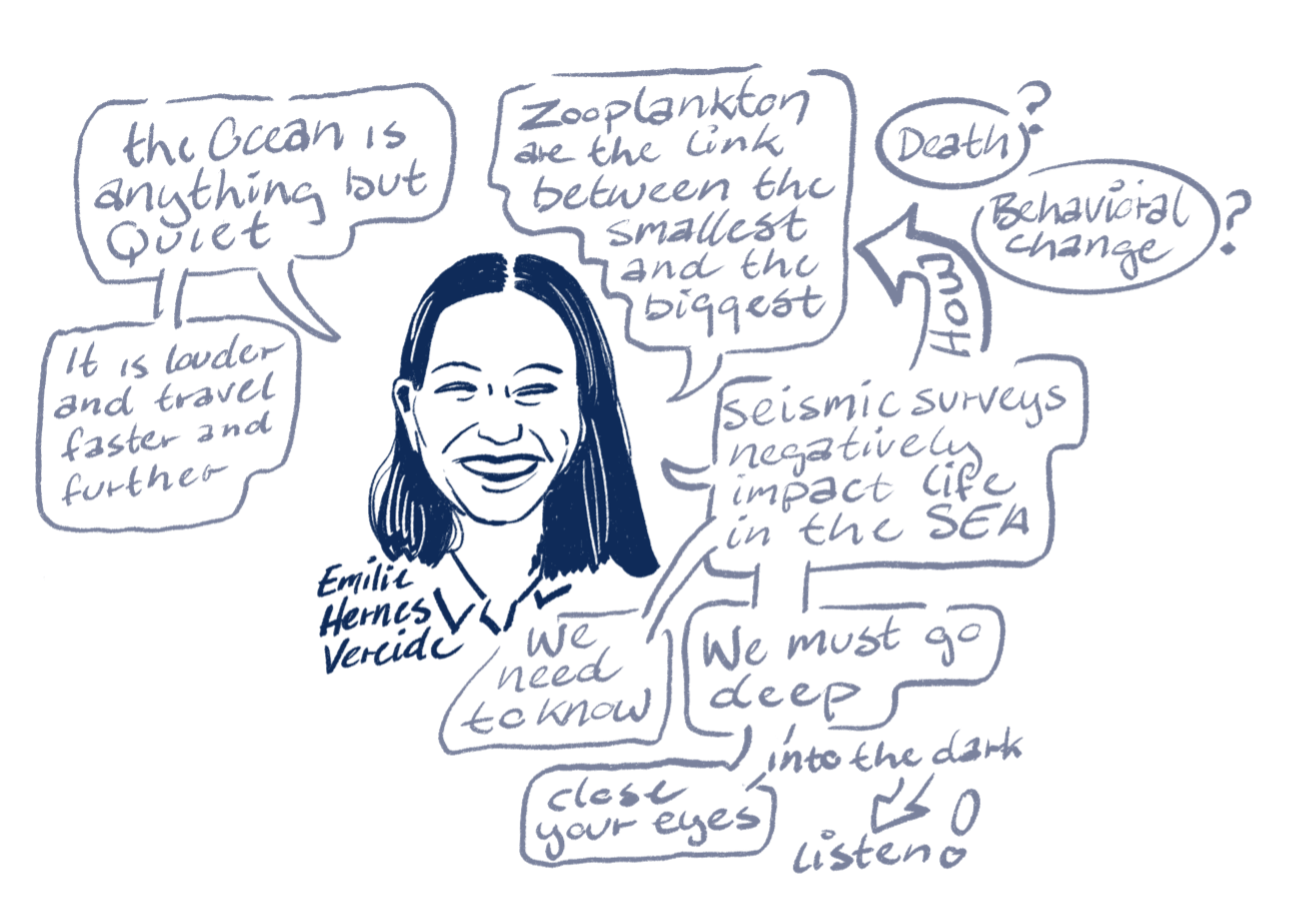 the Ocean is
anything but
Quiet
It is louder
and travel
faster and
further
Zooplankton
are the link
between the
smallest
and the
biggest
Death?
Behavioral
change?
How
Seismic surveys
negatively
impact life
in the SEA
Emilie
Hernes
Vereide
We
need
to know
We must go
deep
into the dark
close
your eyes
listen!